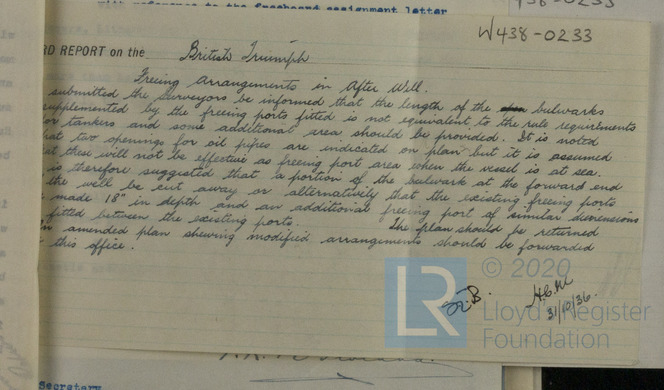 with reference to the freeboard assignment letter
W438-0233
RD REPORT on the British Triumph
Freeing Arrangements in After Well.
submitted the Surveyors be informed that the length of the bulwarks
supplemented by the freeing ports fitted is not equivalent to the rule requirements
or tankers and some additional area should be provided. It is noted
at two openings for oil pipes are indicated on plan but it is assumed
at these will not be effective as freeing port area when the vessel is at sea.
is therefore suggested that a portion of the bulwark at the forward end
the well be cut away or alternatively that the existing freeing ports
made 18" in depth and an additional freeing port of similar dimensions
fitted between the existing ports. The plan should be returned
amended plan shewing modified arrangements should be forwarded
this office.
H.C.M.
31/10/36.
© 2020
LR
Lloyd's Register
Foundation
Secretary